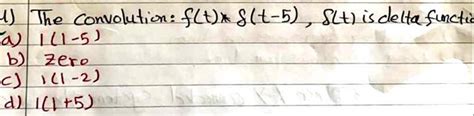 1) The convolution: f(t)* δ(t-5), δ(t) is delta functio
a) 1(1-5)
b) Zero
c) 1(1-2)
d) 1(1+5)